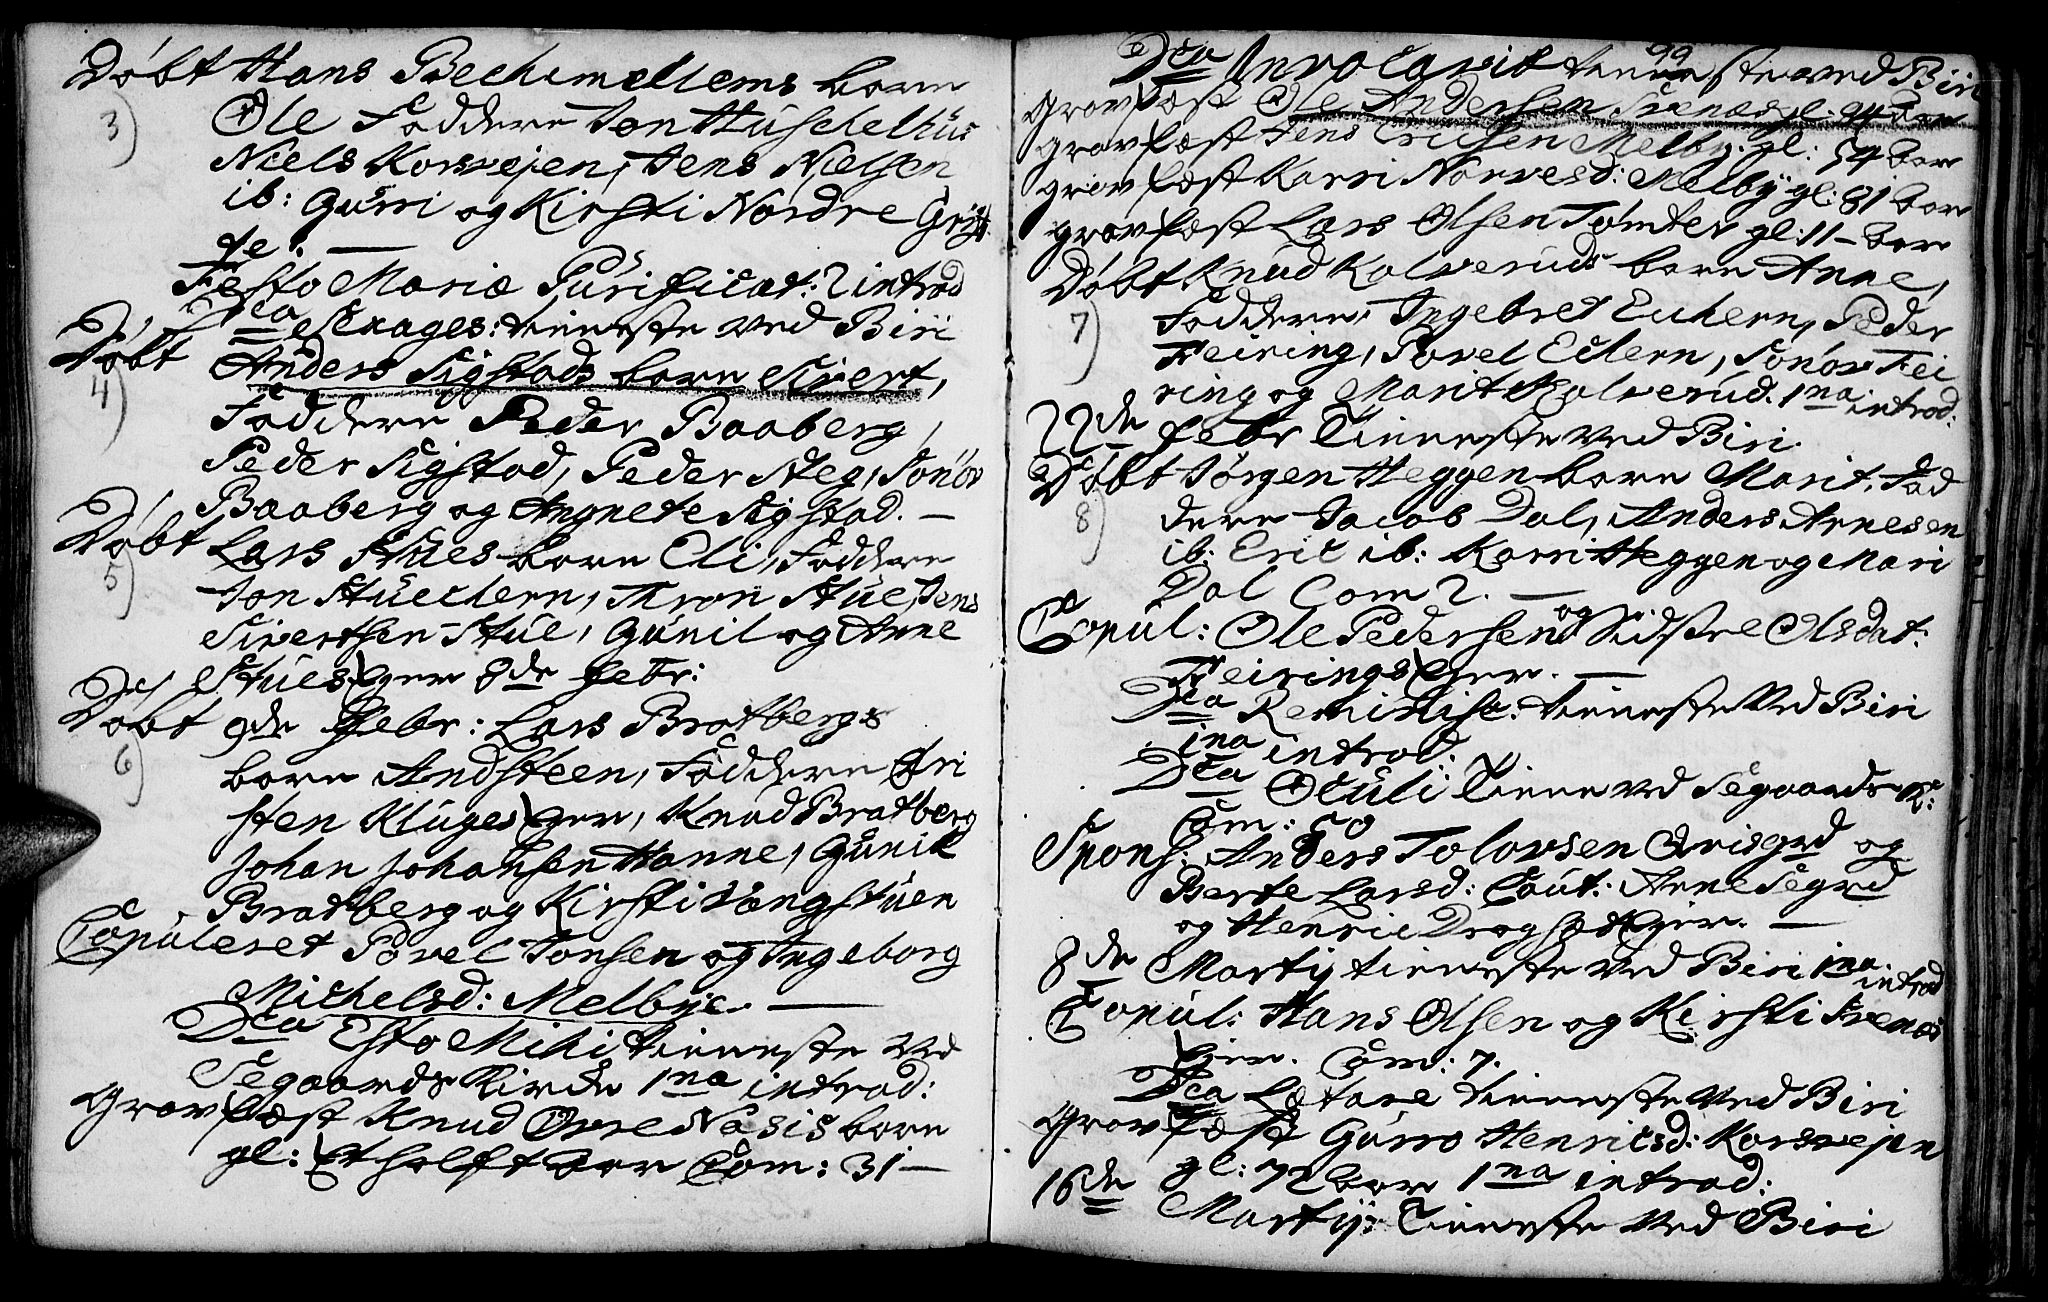 Døbt Hans Bechemellems barn
3) Ole Faddere Jon Huschelhus
Niels Korsvejen, Jens Nielsen
ib: Gurri og Kirsti Nordre Gryt
te. —
Festo Mariæ Purificat: 2 introd
Dca Sexages: tieneste ved Biri
Døbt Anders Sigstads barn Sivert,
4) Faddere Peder Baaberg,
Peder Sigstad, Peder Steg, Sønøv
Baaberg og Angnete Sigstad. —
Døbt Lars Stues barn Eli, Faddere
5) Jon Stuechern, Tron Stue, Jens
Sivertsen Stue, Gunil og Anne
Stues Ejer 8de Febr:
Døbt 9de Febr: Lars Bratbergs
6) barn Andsteen, Faddere Cri
sten Kluges Ejer, Knud Bratberg
Johan Johansen Hanne, Gunil
Bratberg og Kirsti Vangstuen
Copuleret Povel Jonsen og Ingeborg
Michelsd: Melbye. —
Dca Esto Mihi tieneste ved
Segaards Kirche 1na introd:
Gravfæst Knud Øvre Næsis barn
gl: Et halft aar Com: 31 —
99
Dca Invocavit tieneste ved Biri
Gravfæst Ole Andersen Svenæs gl: 94 aar
gravfæst Jens Ericsen Melby. gl: 54 aar
gravfæst Karri Narvesd: Melby gl: 81 aar
gravfæst Lars Olsen Tømter gl: 11 — aar
Døbt Knud Kalveruds barn Anne,
7) Faddere, Ingebret Euchern, Peder
Feiring, Povel Echern, Sønøv Fei
ring og Marit Kalverud. 1na introd:
22de Febr Tieneste ved Biri.
Døbt Jørgen Heggen barn Marit. Fad
8) dere Jacob Dal, Anders Arnesen
ib: Eric ib: Karri Heggen og Mari
Dal Com 2. —
Copul: Ole Pedersen og Sidsel Olsdat:
Feirings Ejer. —
Dca Reminisc: tieneste ved Biri
1na introd:
Dca Oculi Tiene ved Segaards K:
Com: 50
Spons: Anders Tolovsen Qvisgrd og
Berte Larsd: Caut: Arne Segrd
og Henric Dragsæt Ejer. —
8de Martij tieneste ved Biri 1na introd
Copul: Hans Olsen og Kirsti Svenæs
Ejer. Com: 7.
Dca Lætare tieneste ved Biri
Gravfæst Gurro Henricsd: Korsvejen
gl: 72 aar 1na introd:
16de Martij: Tieneste ved Biri